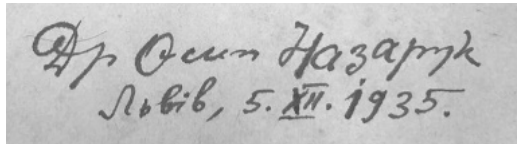 Др Осип Назарук
Львів, 5. XII. 1935.